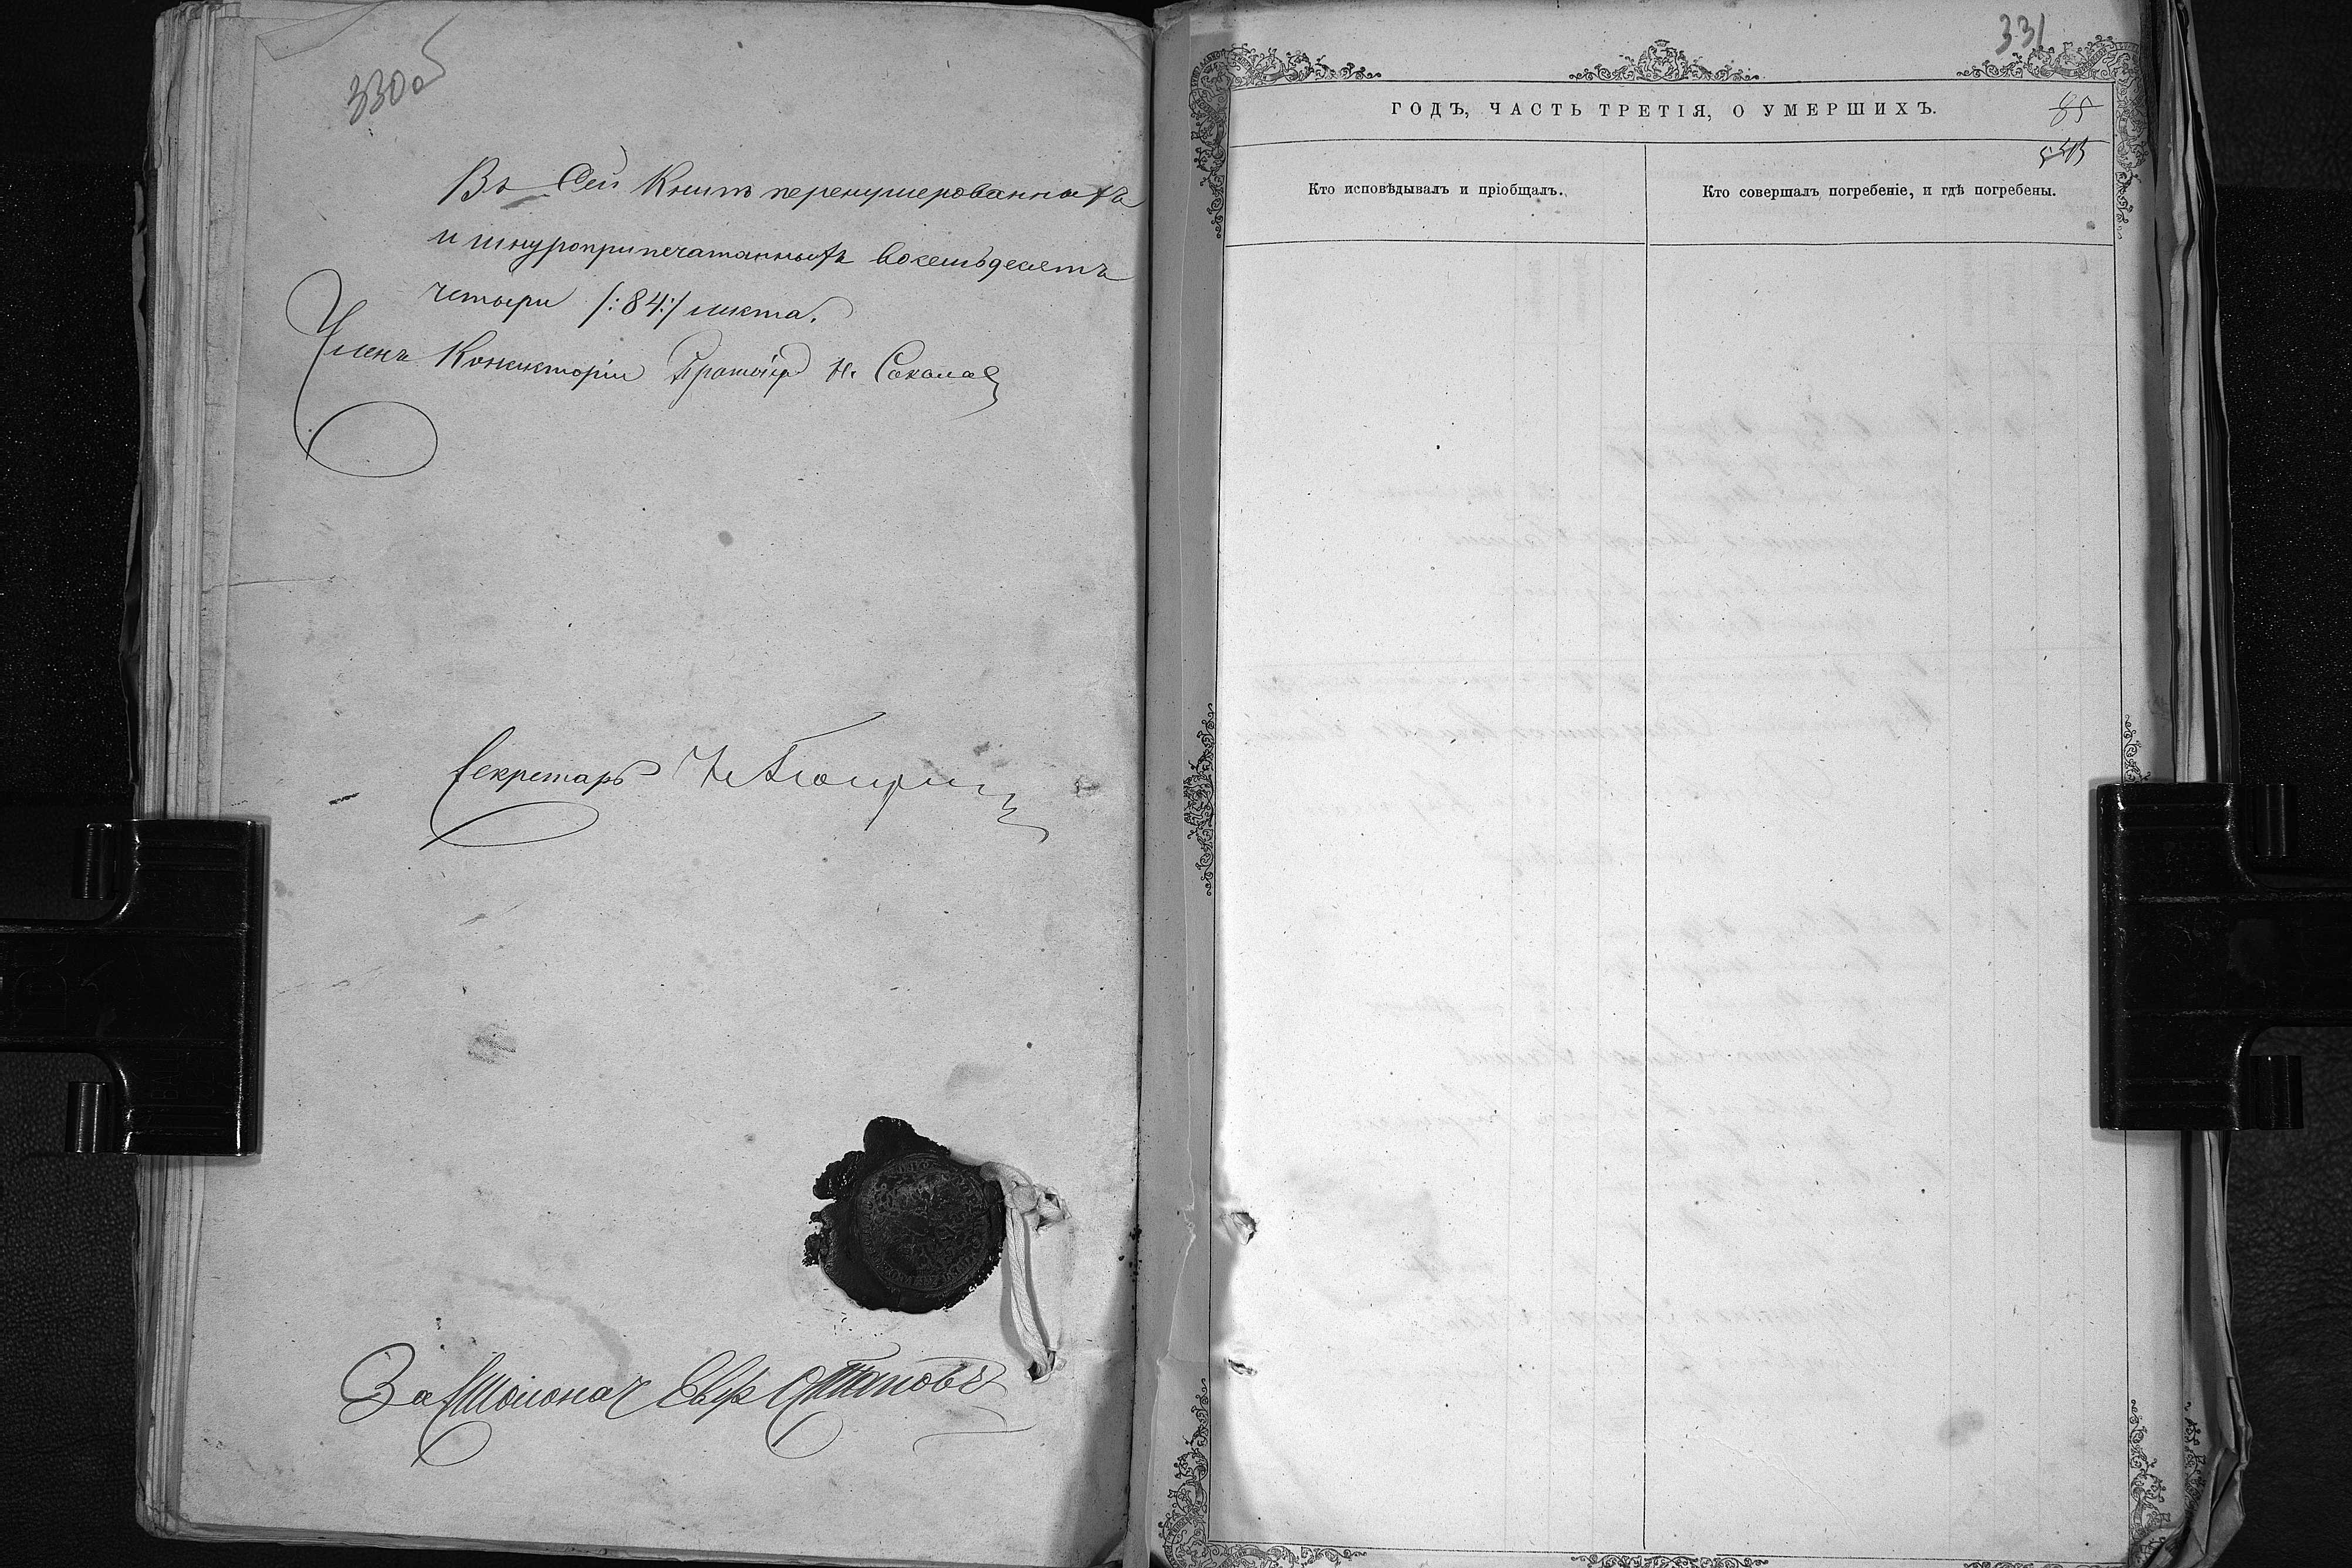 330об
Въ Сей Книгѣ перенумерованныхъ
и шнуроприпечатанныхъ восемьдесятъ
четыри /:84:/ листа.
Членъ Консисторіи Протоіер Н. Соколов
Секретарь
За Столонач
331
ГОДЪ, ЧАСТЬ ТРЕТІЯ, О УМЕРШИХЪ.
85
Кто исповѣдывалъ и пріобщалъ.
Кто совершалъ погребеніе, и гдѣ погребены.